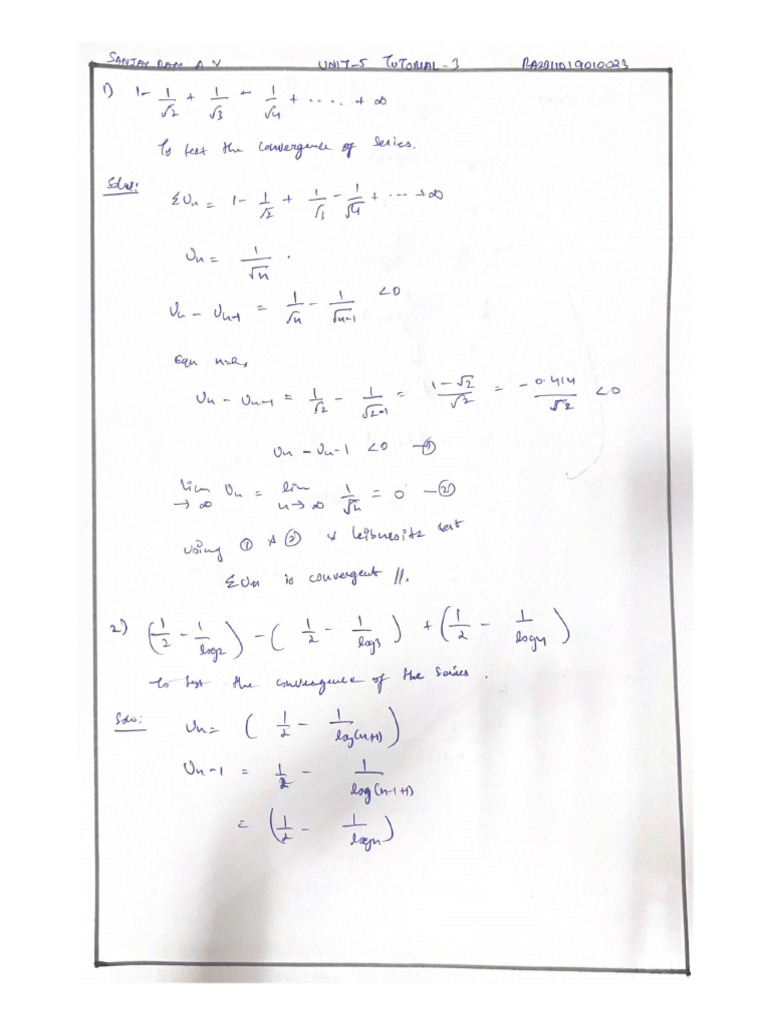 SANJAY RAM A V UNIT-5 TUTORIAL-3 RA2211019010023
1) 1 - 1/√2 + 1/√3 - 1/√4 + ..... + ∞
To test the convergence of series.
Soln:
ΣUn = 1 - 1/√2 + 1/√3 - 1/√4 + ... + ∞
Un = 1/√n .
Un - Un-1 = 1/√n - 1/√n-1 <0
n=2,
Un - Un-1 = 1/√2 - 1/√2-1 = 1-√2/√2 = -0.414/√2 <0
Un - Un-1 <0 —①
lim → ∞ Un = lim n→∞ 1/√n = 0 —②
using ① & ② & leibnitz test
ΣUn is convergent //.
2) (1/2 - 1/log2) - (1/2 - 1/log3) + (1/2 - 1/log4)
To test the convergence of the series.
Soln:
Un = (1/2 - 1/log(n+1))
Un-1 = 1/2 - 1/log(n-1+1)
= (1/2 - 1/logn)